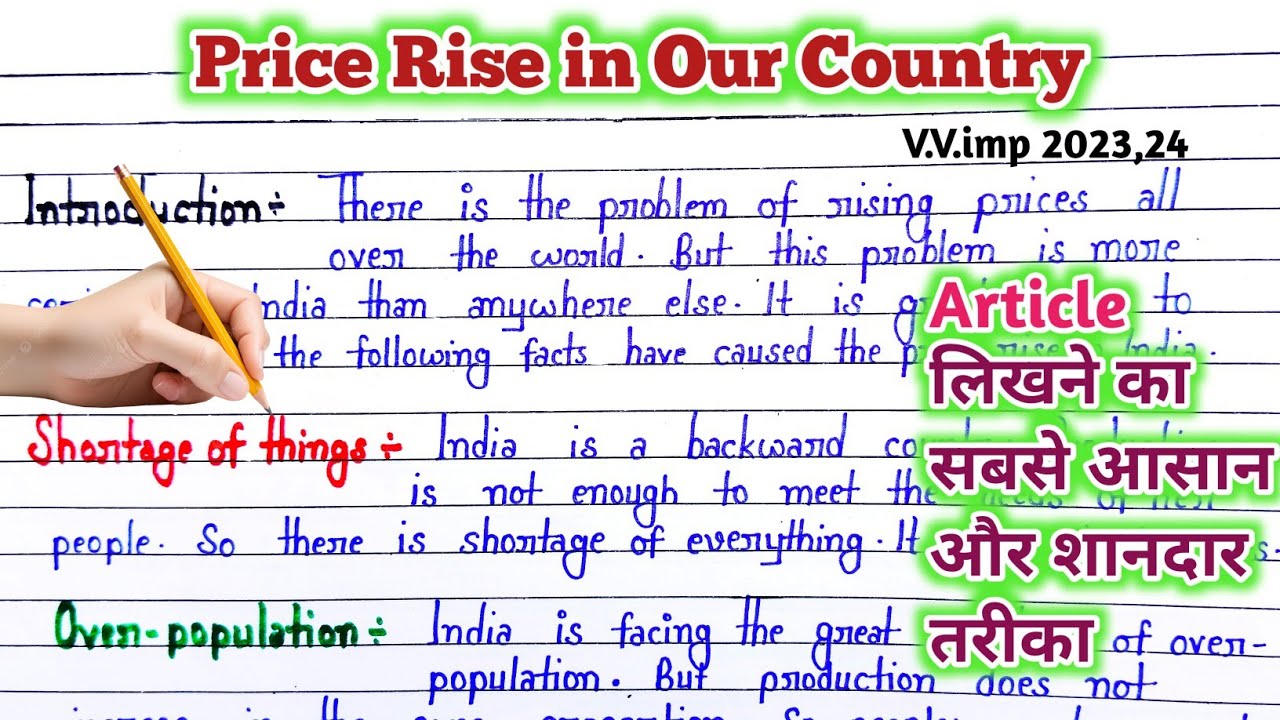 Price Rise in Our Country
V.V.imp 2023,24
Introduction÷ There is the problem of rising prices all
over the world. But this problem is more
India than anywhere else. It is to
the following facts have caused the India.
Shortage of things÷ India is a backward
is not enough to meet the
people. So there is shortage of everything. It
Over-population÷ India is facing the great of over-
population. But production does not
Article
लिखने का
सबसे आसान
और शानदार
तरीका